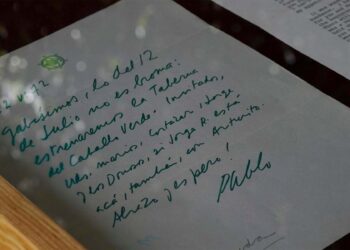 2 V 72
Galosísimos, lo del 12
de Julio no es broma:
estrenaremos la Taberna
del Caballo Verde. Invitados,
Uds. marios, Cortazar, Jorge,
y los Donoso, si Jorge R. está
acá, también, con Arturito.
Abrazo y espero!
Pablo